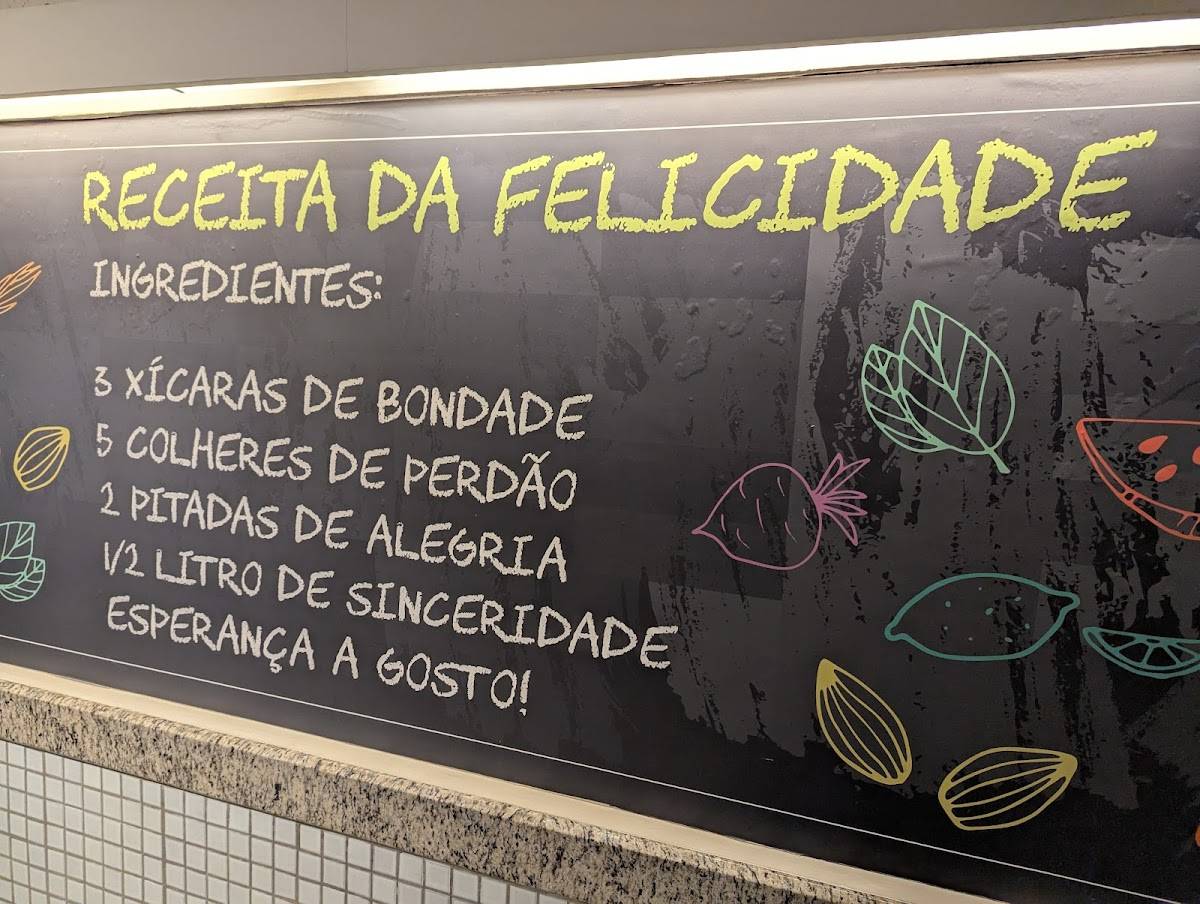 RECEITA DA FELICIDADE
INGREDIENTES:
3 XÍCARAS DE BONDADE
5 COLHERES DE PERDÃO
2 PITADAS DE ALEGRIA
1/2 LITRO DE SINCERIDADE
ESPERANÇA A GOSTO!